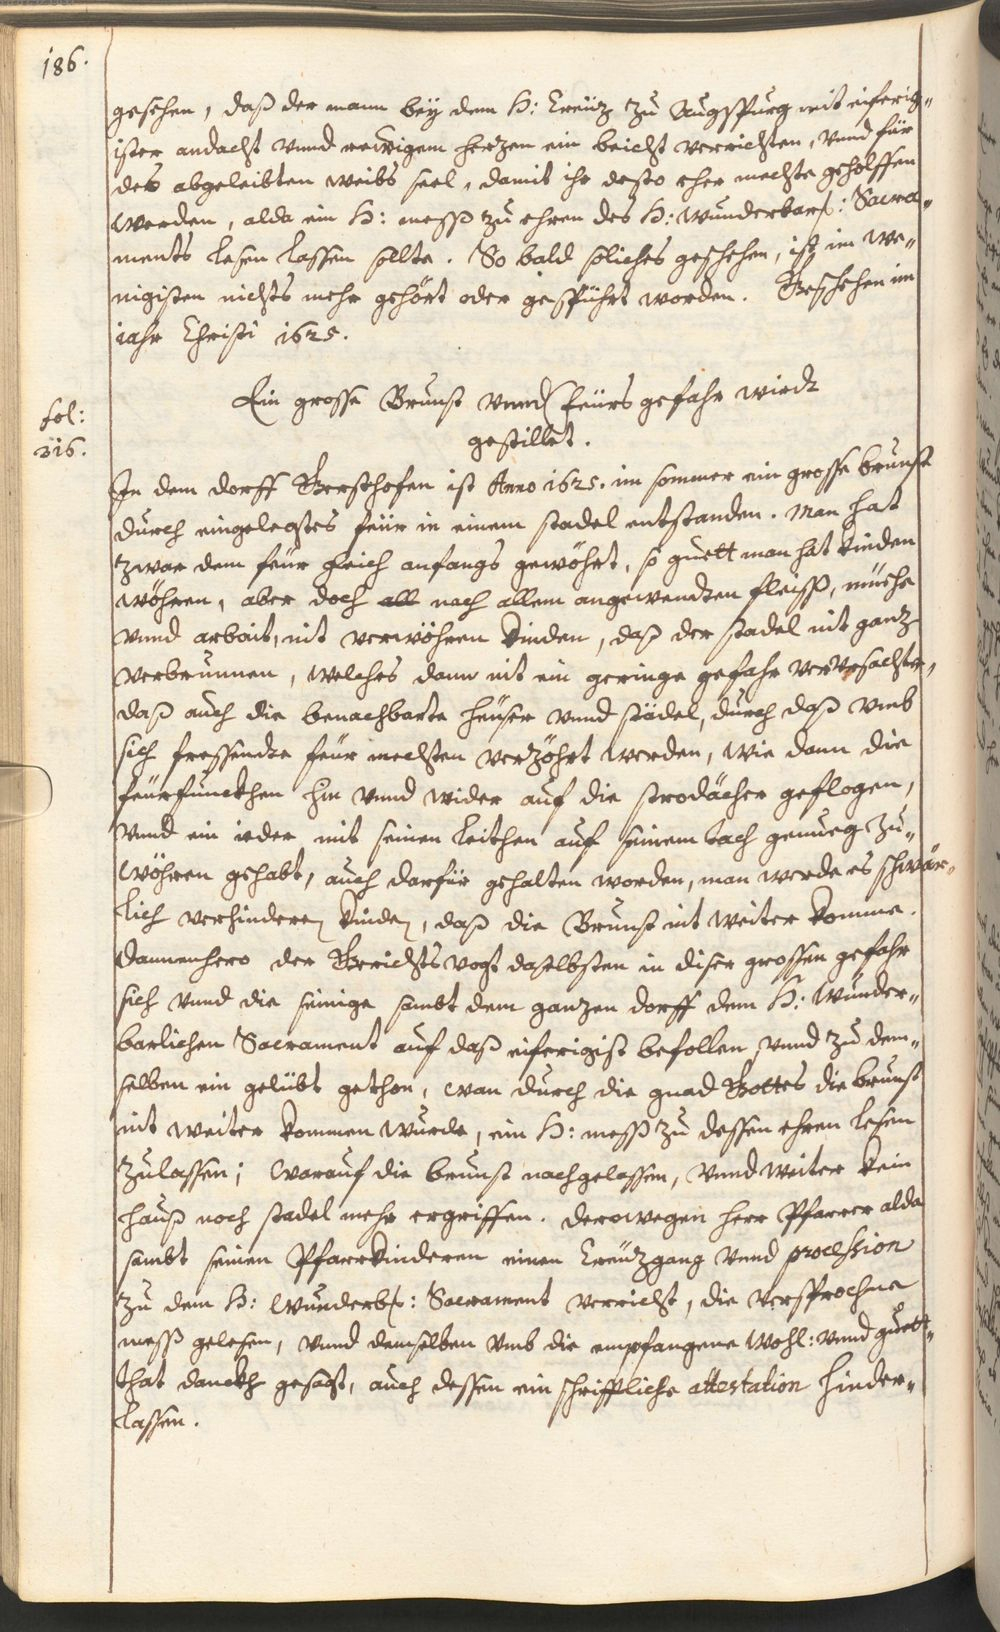 186.
gesehen, daß der mann bey dem H: Creüz zu Augspurg mit eiferig-
ister andacht vnnd rewigem herzen ein beicht verrichten, vnnd für
des abgeleibten weibs seel, damit ihr desto eher mechte geholffen
werden, alda ein H: mess zu ehren des H: wunderbarl: Sacra-
ments lesen lassen sollte. So bald soliches geschehen, ist im we-
nigisten nichts mehr gehört oder gespührt worden. Beschehen im
iahr Christi 1625.
Ein grosse Brunst vnnd feürs gefahr wirdt
gestillet.
fol:
316.
In dem dorff Gersthofen ist Anno 1625. im sommer ein grosse brunst
durch eingelegtes feür in einem stadel entstanden. Man hat
zwar dem feür gleich anfangs gewöhrt, so guett man hat kinden
wöhren, aber doch all nach allem angewendten fleiss, müehe
vnnd arbait, nit verwöhren kinden, daß der stadel nit ganz
verbrunnen, welches dann nit ein geringe gefahr verursachte,
daß auch die benachbarte heüser vnnd städel, durch daß vmb
sich fressendte feür mechten verzöhrt werden, wie dann die
feürfunckhen hin vnnd wider auf die strodächer geflogen,
vnnd ein ieder mit seinen leithen auf seinem tach genueg zu-
wöhren gehabt, auch darfür gehalten worden, man werde es schwär-
lich verhinderen kinden, daß die Brunst nit weiter komme.
Dannenhero der Gerichtsvogt daselbsten in diser grossen gefahr
sich vnnd die seinige sambt dem ganzen dorff dem H: wunder-
barlichen Sacrament auf daß eiferigist befollen, vnnd zu dem-
selben ein gelübt gethon, wan durch die gnad Gottes die brunst
nit weiter kommen wurde, ein H: mess zu dessen ehren lesen
zulassen; warauf die brunst nachgelassen, vnnd weiter kein
hauß noch stadel mehr ergriffen. derowegen herr Pfarrer alda
sambt seinen Pfarrkinderen einen Creüzgang vnnd procession
zu dem H: wunderbl: Sacrament verricht, die versprochne
mess gelesen, vnnd demselben vmb die empfangene wohl: vnnd guett-
that danckh gesagt, auch dessen ein schrifftliche attestation hinder-
lassen.